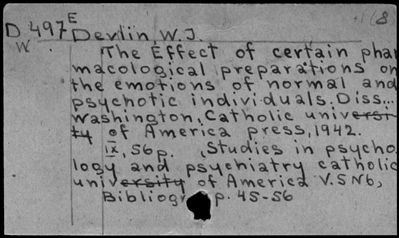 E 18
D 497 Devlin W.J.
W The Effect of certain phar
macological preparations on
the emotions of normal and
psychotic individuals. Diss...
Washington, Catholic universi
ty of America press, 1942.
IX, 56 p. Studies in psycho
logy and psychiatry catholic
university of America V.5 N6,
Bibliogr p. 45-56